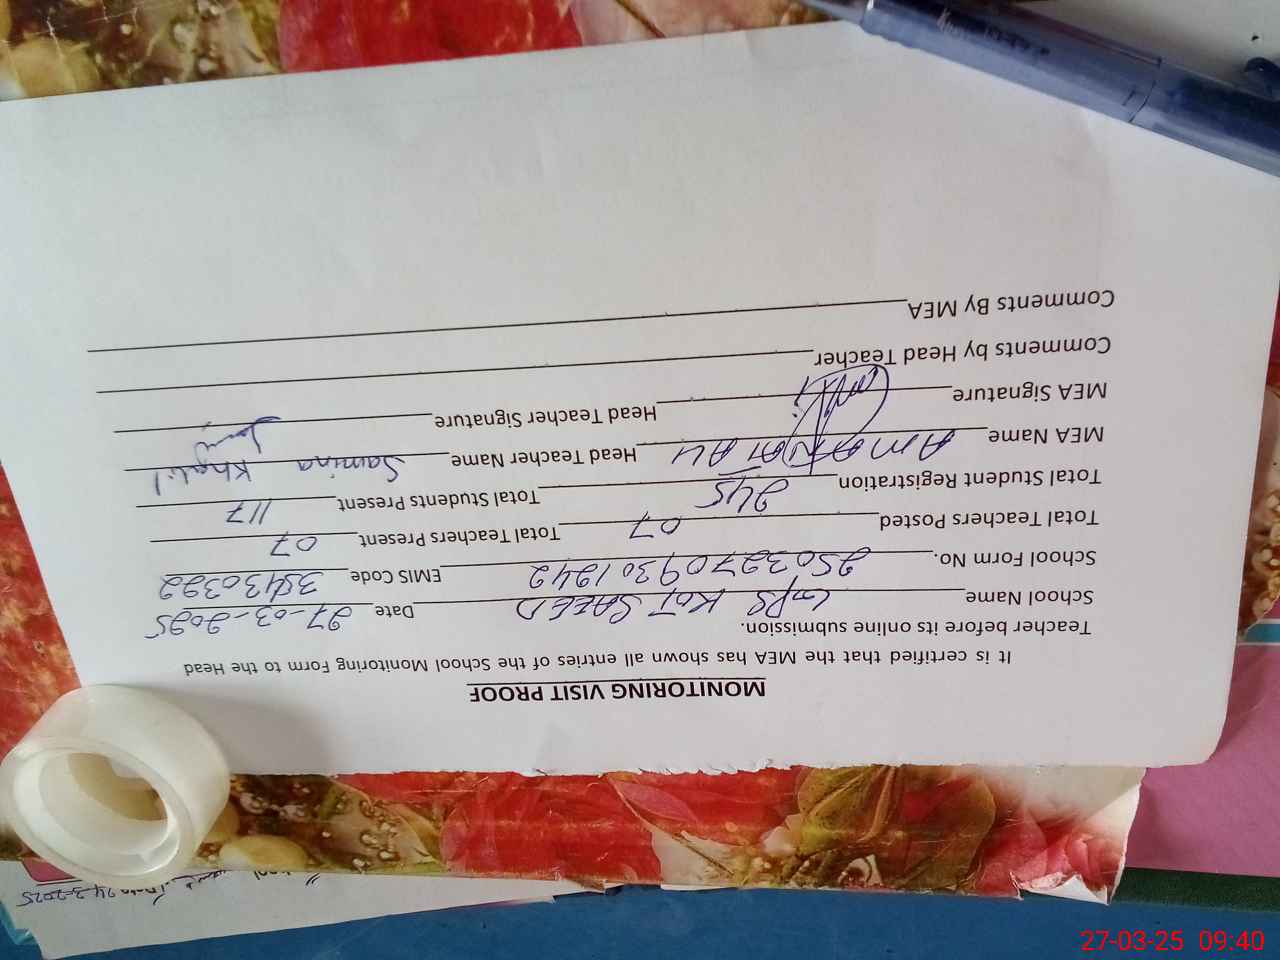 MONITORING VISIT PROOF
It is certified that the MEA has shown all entries of the School Monitoring Form to the Head
Teacher before its online submission.
School Name GPS KOT SAEED Date 27-03-2025
School Form No. 25032709301242 EMIS Code 35430322
Total Teachers Posted 07 Total Teachers Present 07
Total Student Registration 245 Total Students Present 117
MEA Name AMANAT ALI Head Teacher Name Samina Khalil
MEA Signature Head Teacher Signature
Comments by Head Teacher
Comments By MEA
Date 24-3-2025
27-03-25 09:40